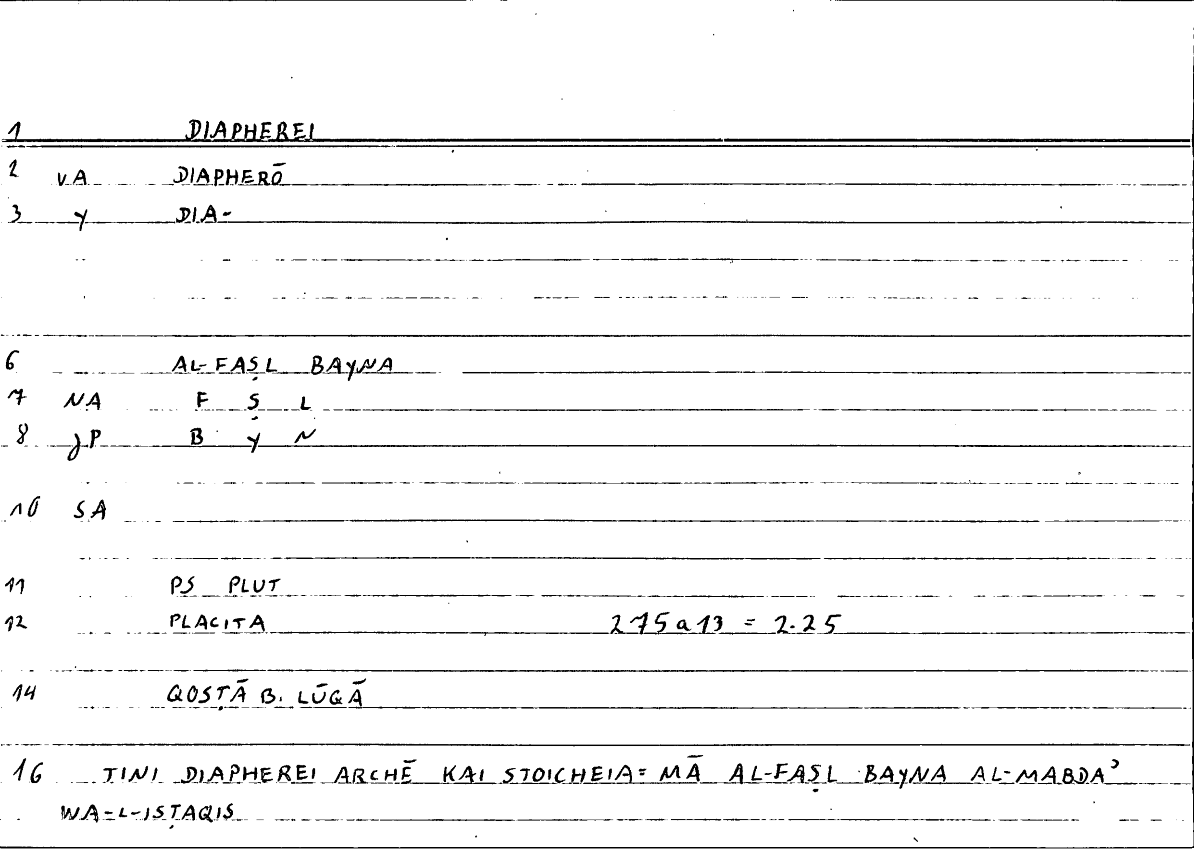 1 DIAPHEREI
2 VA DIAPHERŌ
3 Y DIA-
6 AL-FAṢL BAYNA
7 NA F Ṣ L
8 JP B Y N
10 SA
11 PS PLUT
12 PLACITA 275a13 = 2.25
14 QOSṬĀ B. LŪQĀ
16 TINI DIAPHEREI ARCHĒ KAI STOICHEIA = MĀ AL-FAṢL BAYNA AL-MABDAʾ
WA-L-ISṬAQIS